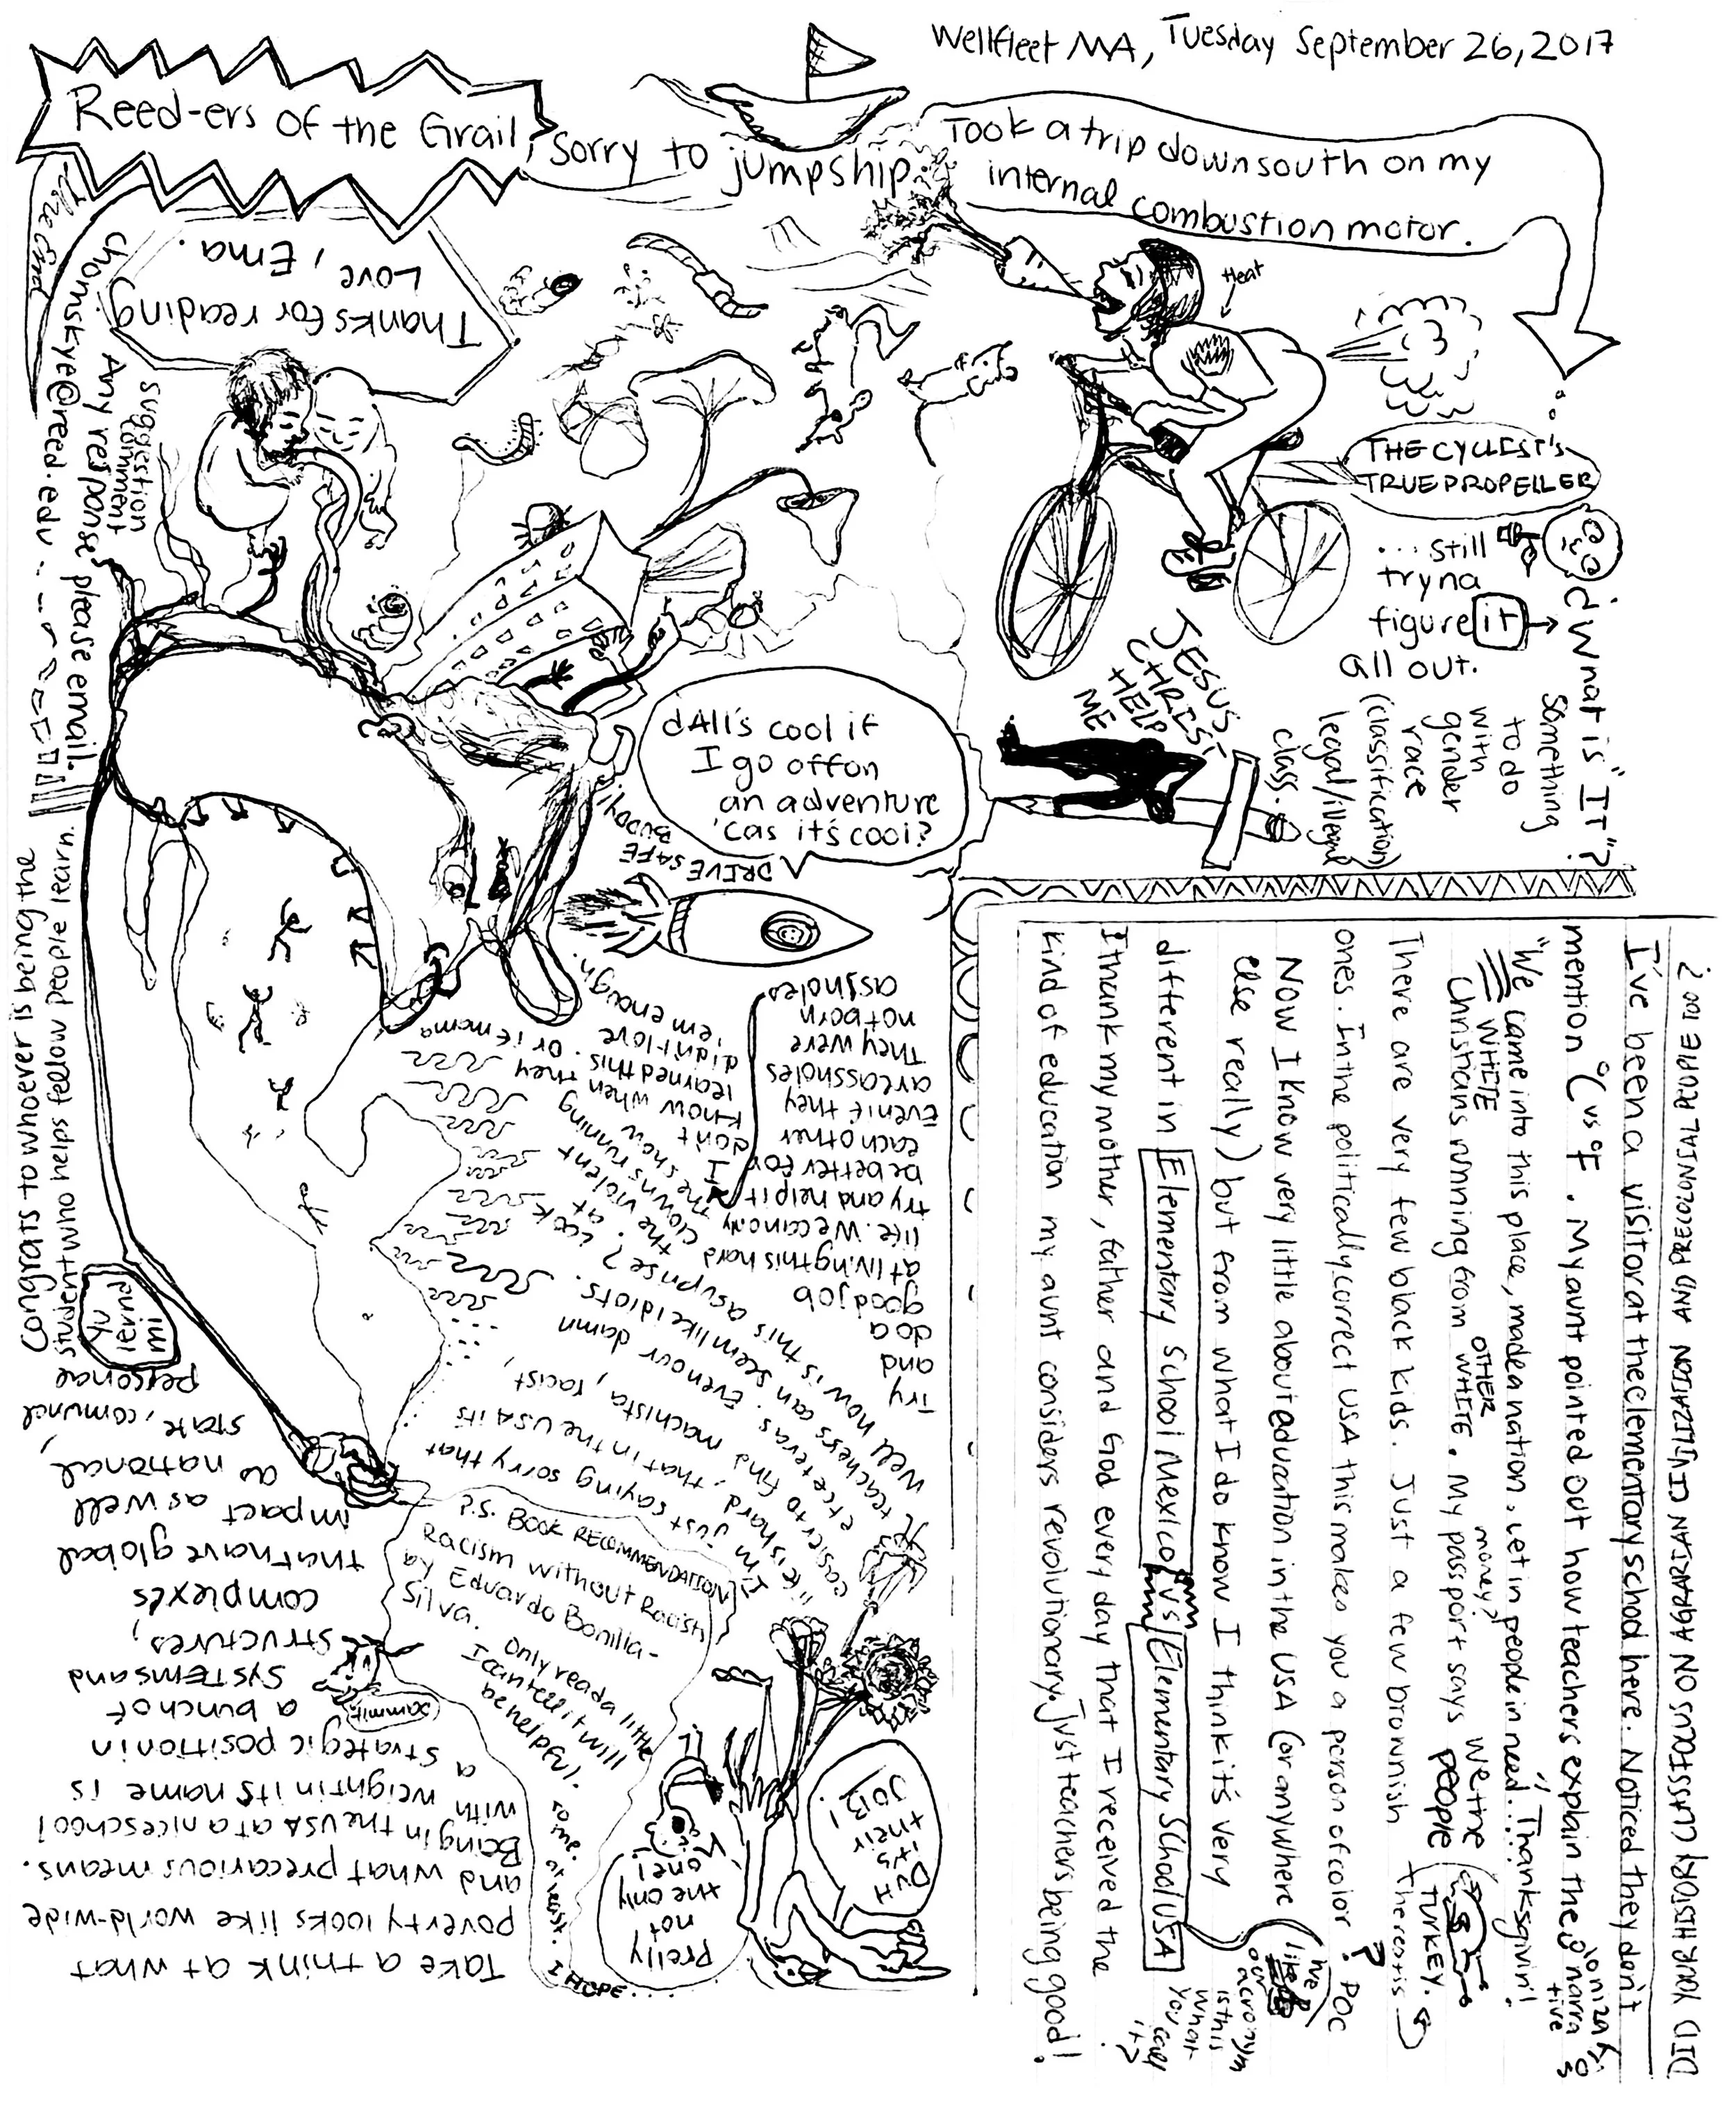 Wellfleet MA, Tuesday September 26, 2017
Reed-ers of the Grail,
Sorry to jumpship.
Took a trip down south on my
internal combustion motor.
Heat
THE CYCLEST'S
TRUE PROPELLER
... still
tryna
figure it
all out.
What is "IT"?
Something
to do
with
gender
race
(classification)
legal/illegal
class.
JESUS
CHRIST
HELP
ME
DID YOUR HISTORY CLASSES FOCUS ON AGRARIAN CIVILIZATION AND PRECOLONIAL PEOPLE TOO?
I've been a visitor at the elementary school here. Noticed they don't
mention °C vs °F. My aunt pointed out how teachers explain the
narra
tive
"We came into this place, made a nation, let in people in need..." Thanksgivin'!
WHITE
Christians running from WHITE. My passport says we the
OTHER
money?
people
TURKEY.
There are very few black kids. Just a few brownish
ones. In the politically correct USA this makes you a person of color. POC
?
Now I know very little about education in the USA (or anywhere
else really) but from what I do know I think it's very
different in Elementary School Mexico vs Elementary School USA
is this
what
you call
it?
acronym
I thank my mother, father and God every day that I received the
kind of education my aunt considers revolutionary. Just teachers being good!
dAli's cool if
I go off on
an adventure
'cas it's cool?
DRIVE SAFE
BUDDY!
Take a think at what
poverty looks like world-wide
and what precarious means.
Being in the USA at a nice school
with weight in its name is
a strategic position in
a bunch of
systems and
structures,
complexes
that have global
impact as well
as national,
state, comunal,
personal
(sammit)
I'm just saying sorry that
like is hard, that in the USA it's
easier to find machista, racist,
etceteras. Even our damn
teachers can seem like idiots.
Well how is this a suprise? Look at
the violent
clowns running
the show
I don't
know when they
learned this. Or if mama
didn't love
'em enough.
Try
and
do a
good job
at living this hard
life. We can only
try and help it
be better for
each other
Even if they
are assholes
They were
not born
assholes
P.S. BOOK RECOMMENDATION
Racism without Racists
by Eduardo Bonilla-
Silva.
Only read a little
I can tell it will
be helpful.
to me.
at least.
I HOPE...
Prelly
not
the only
one!
DUH
it's
their
JOB!
Congrats to whoever is being the
student who helps fellow people learn.
Any response please email.
suggestion
comment
chomskye@reed.edu
Thanks for reading
Love, Ema.
The End